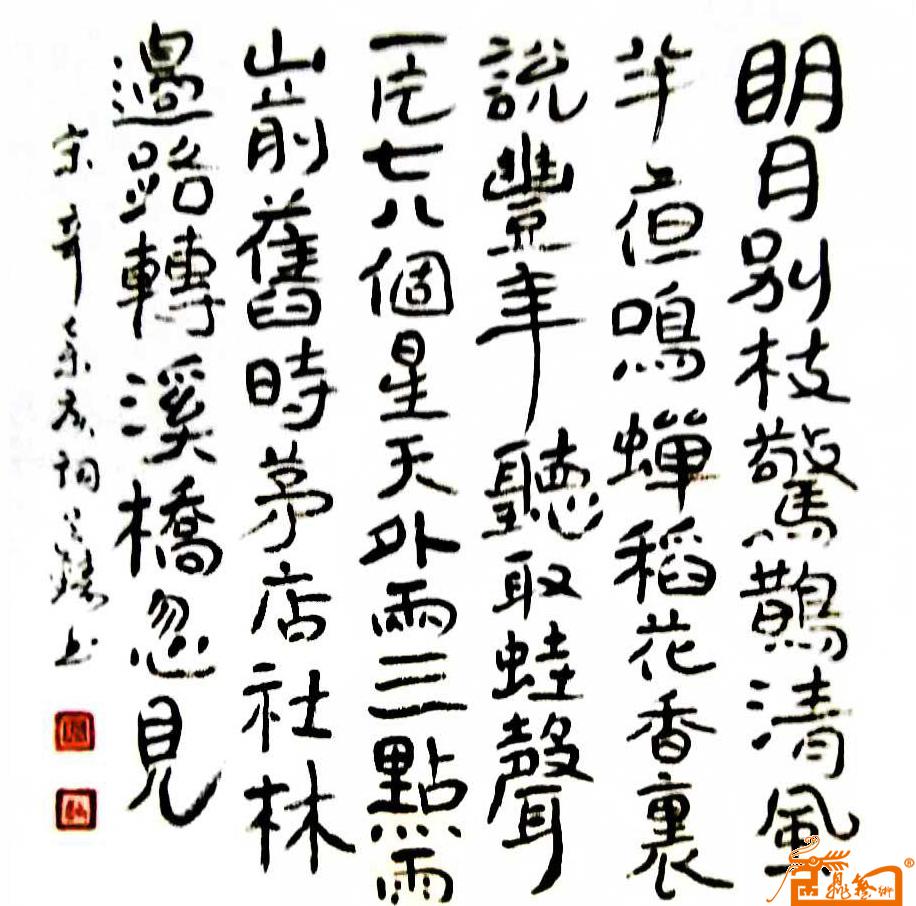 眀月别枝驚鵲清風
半夜鳴蟬稻花香裏
說豐年聽取蛙聲
一片七八個星天外兩三點雨
山前舊時茅店社林
邊路轉溪橋忽見
宋辛棄疾詞书